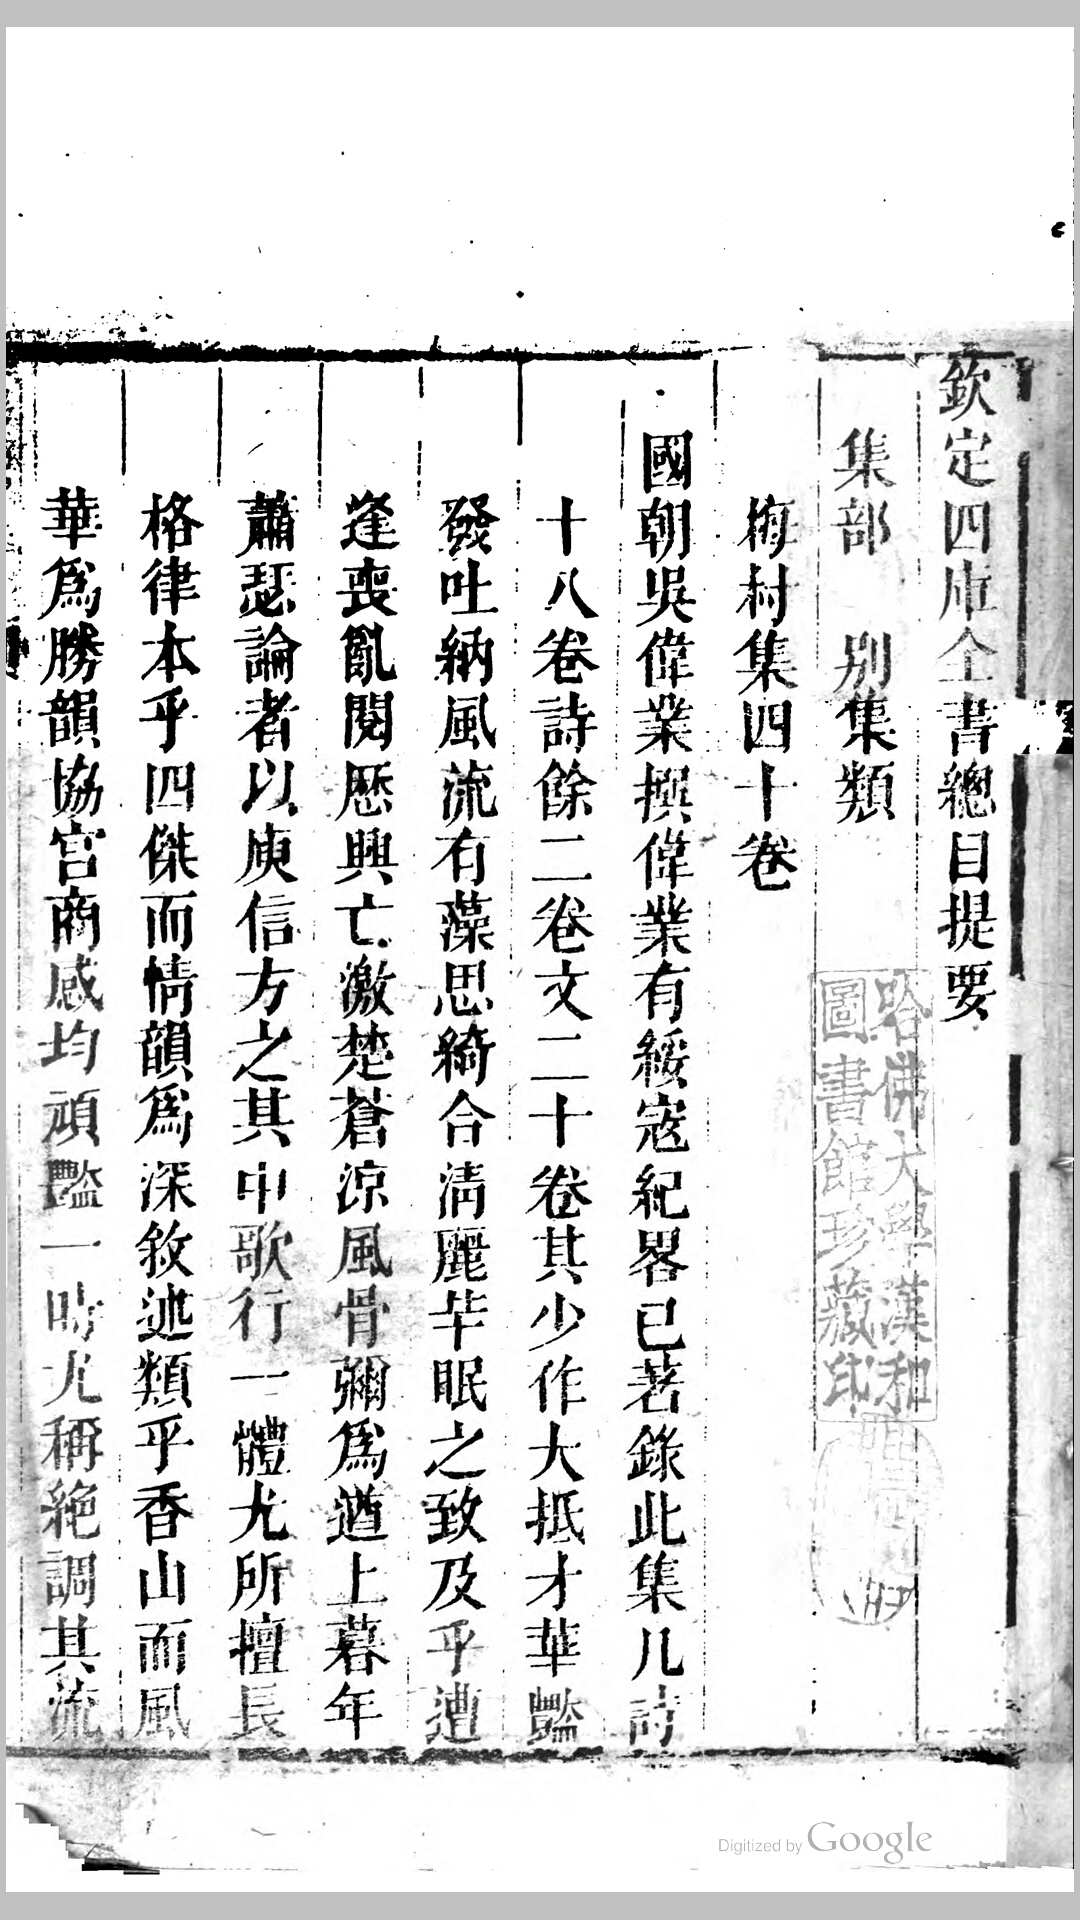 欽定四庫全書總目提要
集部　別集類
梅村集四十卷
國朝吳偉業撰偉業有綏寇紀畧已著錄此集凡詩
十八卷詩餘二卷文二十卷其少作大抵才華豔
發吐納風流有藻思綺合清麗芊眠之致及乎遭
逢喪亂閱歷興亡激楚蒼涼風骨彌爲遒上暮年
蕭瑟論者以庾信方之其中歌行一體尤所擅長
格律本乎四傑而情韻爲深敘述類乎香山而風
華爲勝韻協宮商感均頑豔一時尤稱絕調其流
哈佛大學漢和
圖書館珍藏印
Digitized by Google